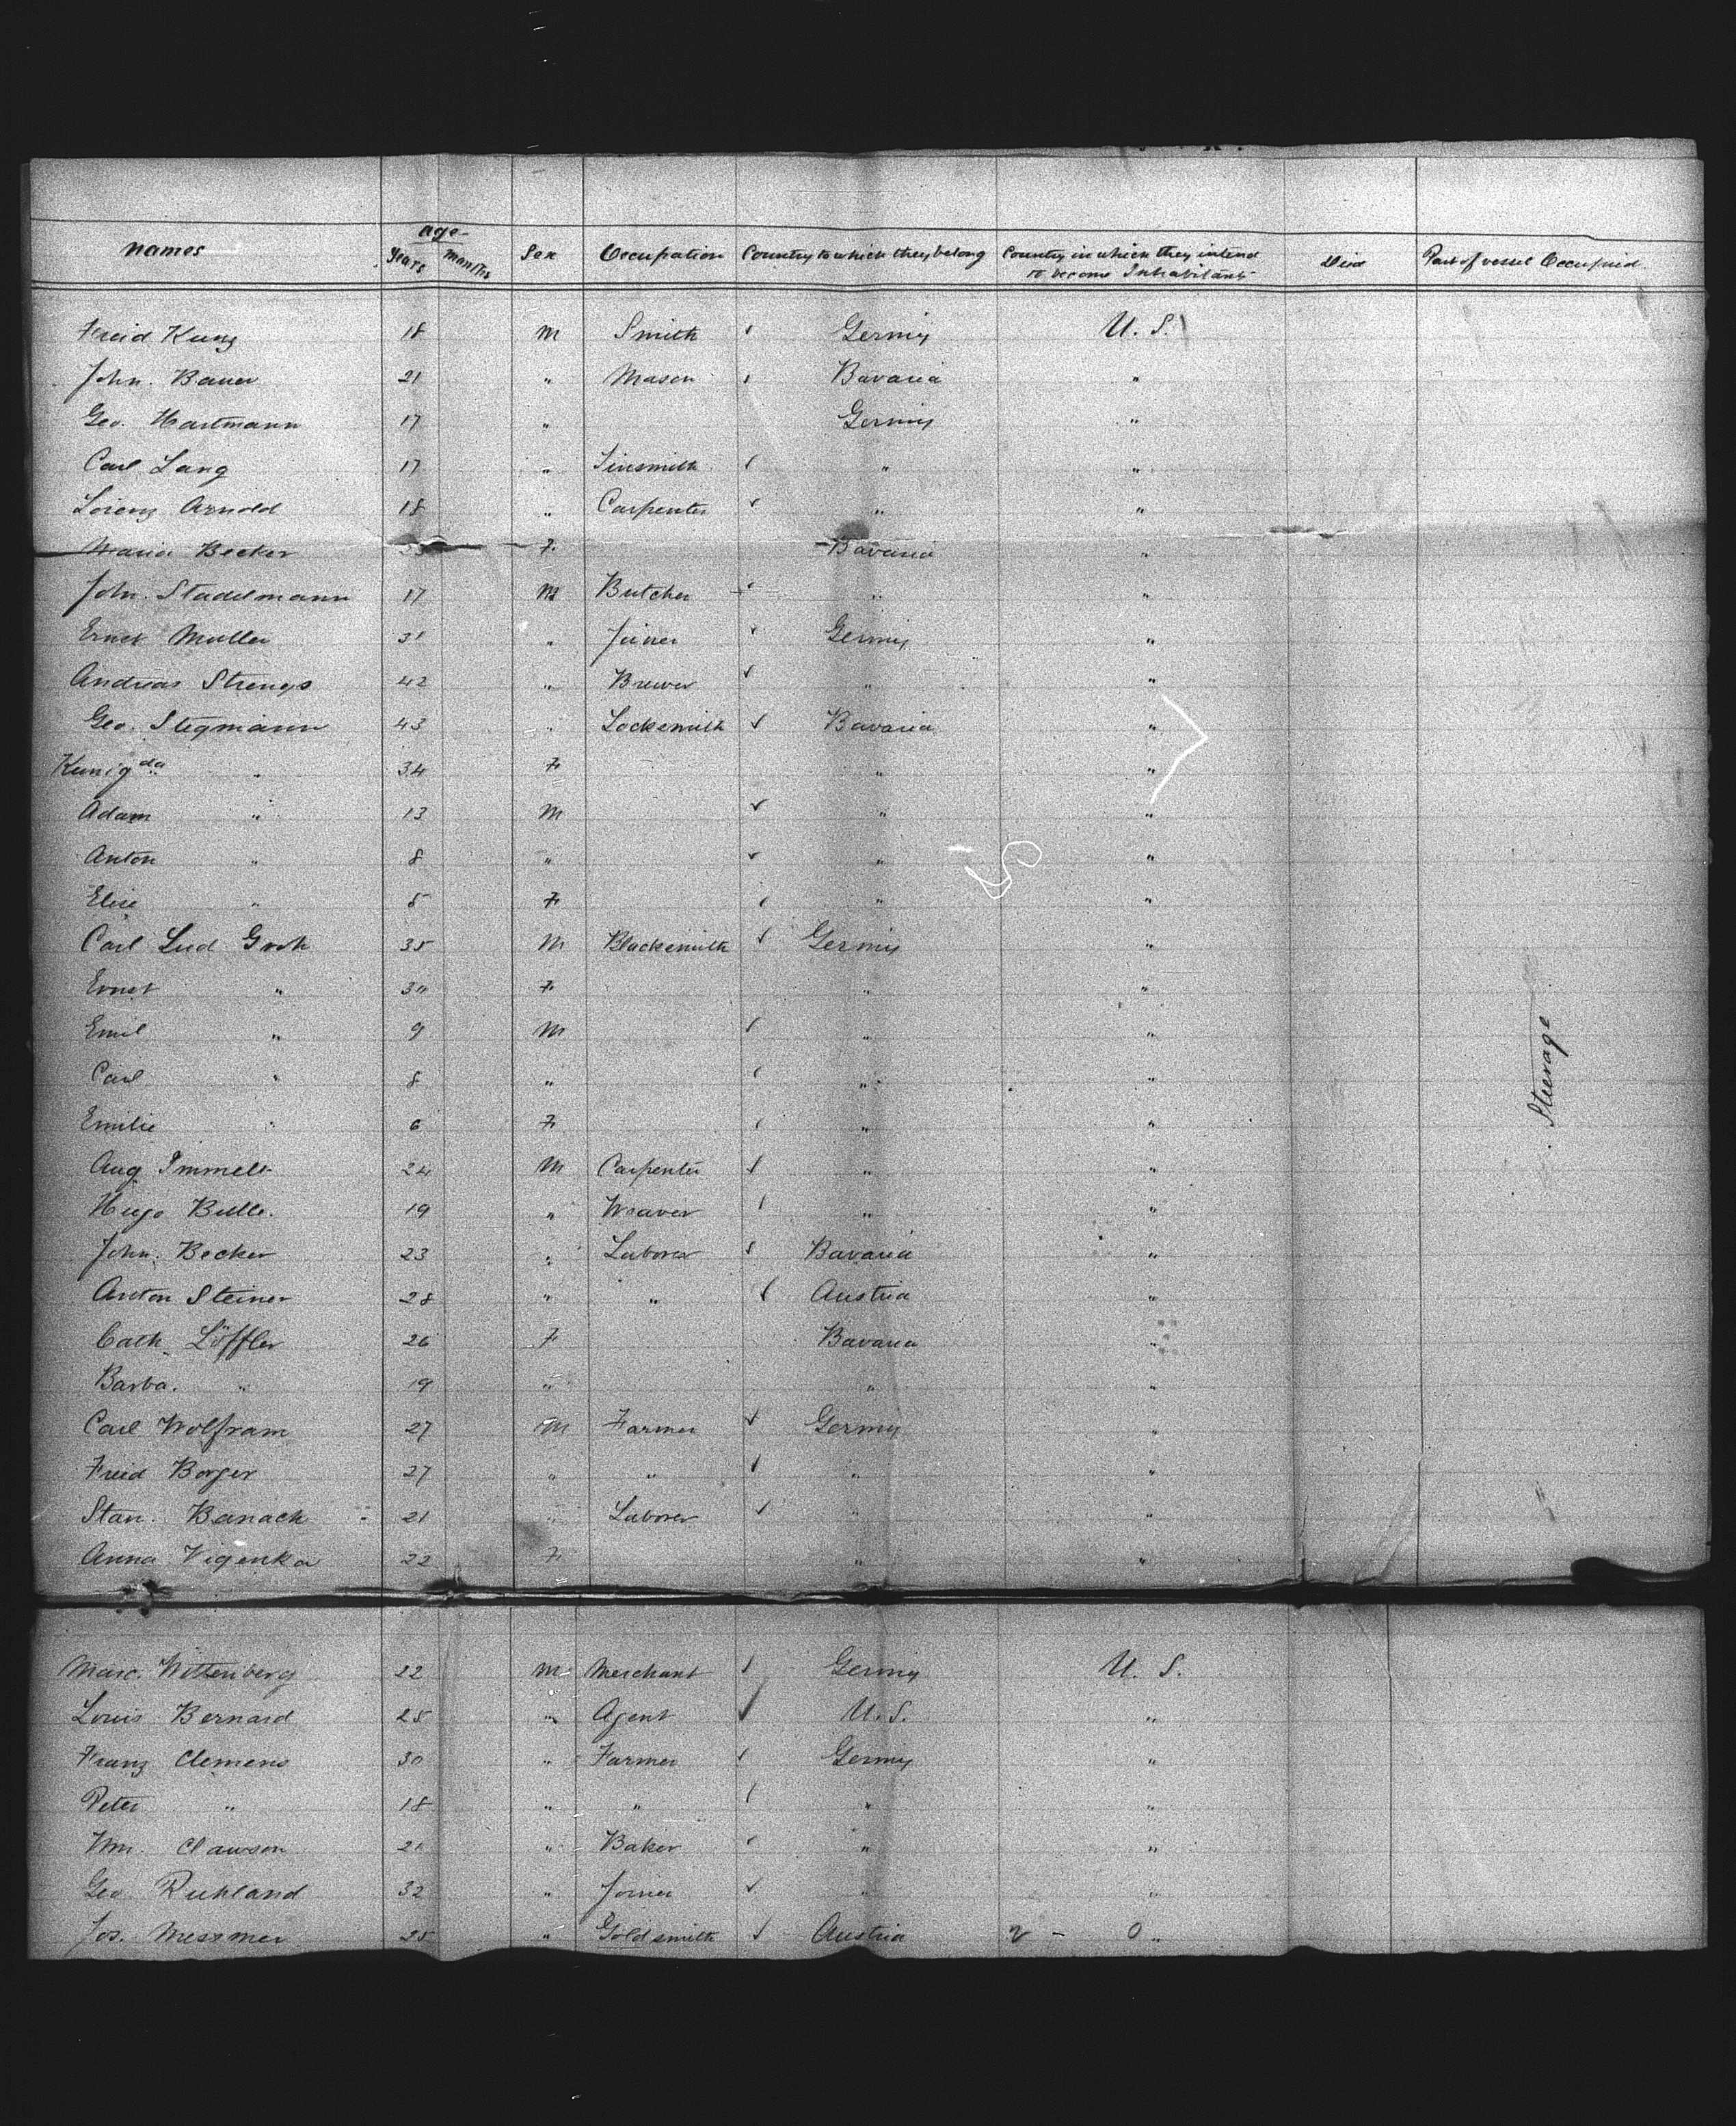 names age Years Months Sex Occupation Country to which they belong Country in which they intend to become Inhabitants Died Part of vessel Occupied
Fried Kunz 18 M Smith Germy U. S.
John. Bauer 21 " Mason Bavaria "
Geo. Hartmann 17 " Germy "
Carl Lang 17 " Tinsmith " "
Lorenz Arnold 18 " Carpenter " "
Maria Becker F. Bavaria "
John. Stadelmann 17 M Butcher " "
Ernst Muller 31 " Joiner Germy "
Andreas Strengs 42 " Brewer " "
Geo. Stegmann 43 " Locksmith Bavaria "
Kunigda " 34 F " "
Adam " 13 M " "
Anton " 8 " " "
Elise " 5 F " "
Carl Lud Groh 35 M Blacksmith Germy "
Ernst " 30 F " "
Emil " 9 M " "
Carl " 8 " " "
Emilie " 6 F " "
Steerage
Aug. Immelt 24 M Carpenter " "
Hugo Bulle. 19 " Weaver " "
John. Becker 23 " Laborer Bavaria "
Anton Steiner 28 " " Austria "
Cath. Löffler 26 F Bavaria "
Barba. " 19 " " "
Carl Wolfram 27 M Farmer Germy "
Fried Borger 27 " " " "
Stan. Banach 21 " Laborer " "
Anna Vigenka 22 F " "
Marc. Wittenberg 22 M Merchant Germy U. S.
Louis Bernard 25 " Agent U. S. "
Franz Clemens 30 " Farmer Germy "
Peter " 18 " " " "
Wm. Clawson 21 " Baker " "
Geo. Ruhland 32 " Joiner " "
Jos. Messmer 25 " Goldsmith Austria "